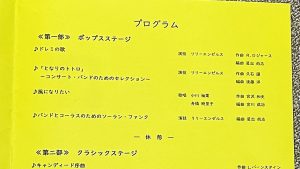 プログラム
≪第一部≫ ポップスステージ
♪ドレミの歌 演技 リリーエンゼルス 作曲 R.ロジャース
編曲 星出尚志
♪「となりのトトロ」 演技 リリーエンゼルス 作曲 久石 譲
～コンサート・バンドのためのセレクション～ 編曲 後藤 洋
♪風になりたい 歌唱 小川 作曲 宮沢和史
編曲
♪バンドとコーラスのためのソーラン・ファンク 演技 リリーエンゼルス 編曲 星出尚志
― 休 憩 ―
≪第二部≫ クラシックステージ
♪キャンディード序曲 作曲 L.バーンスタイン